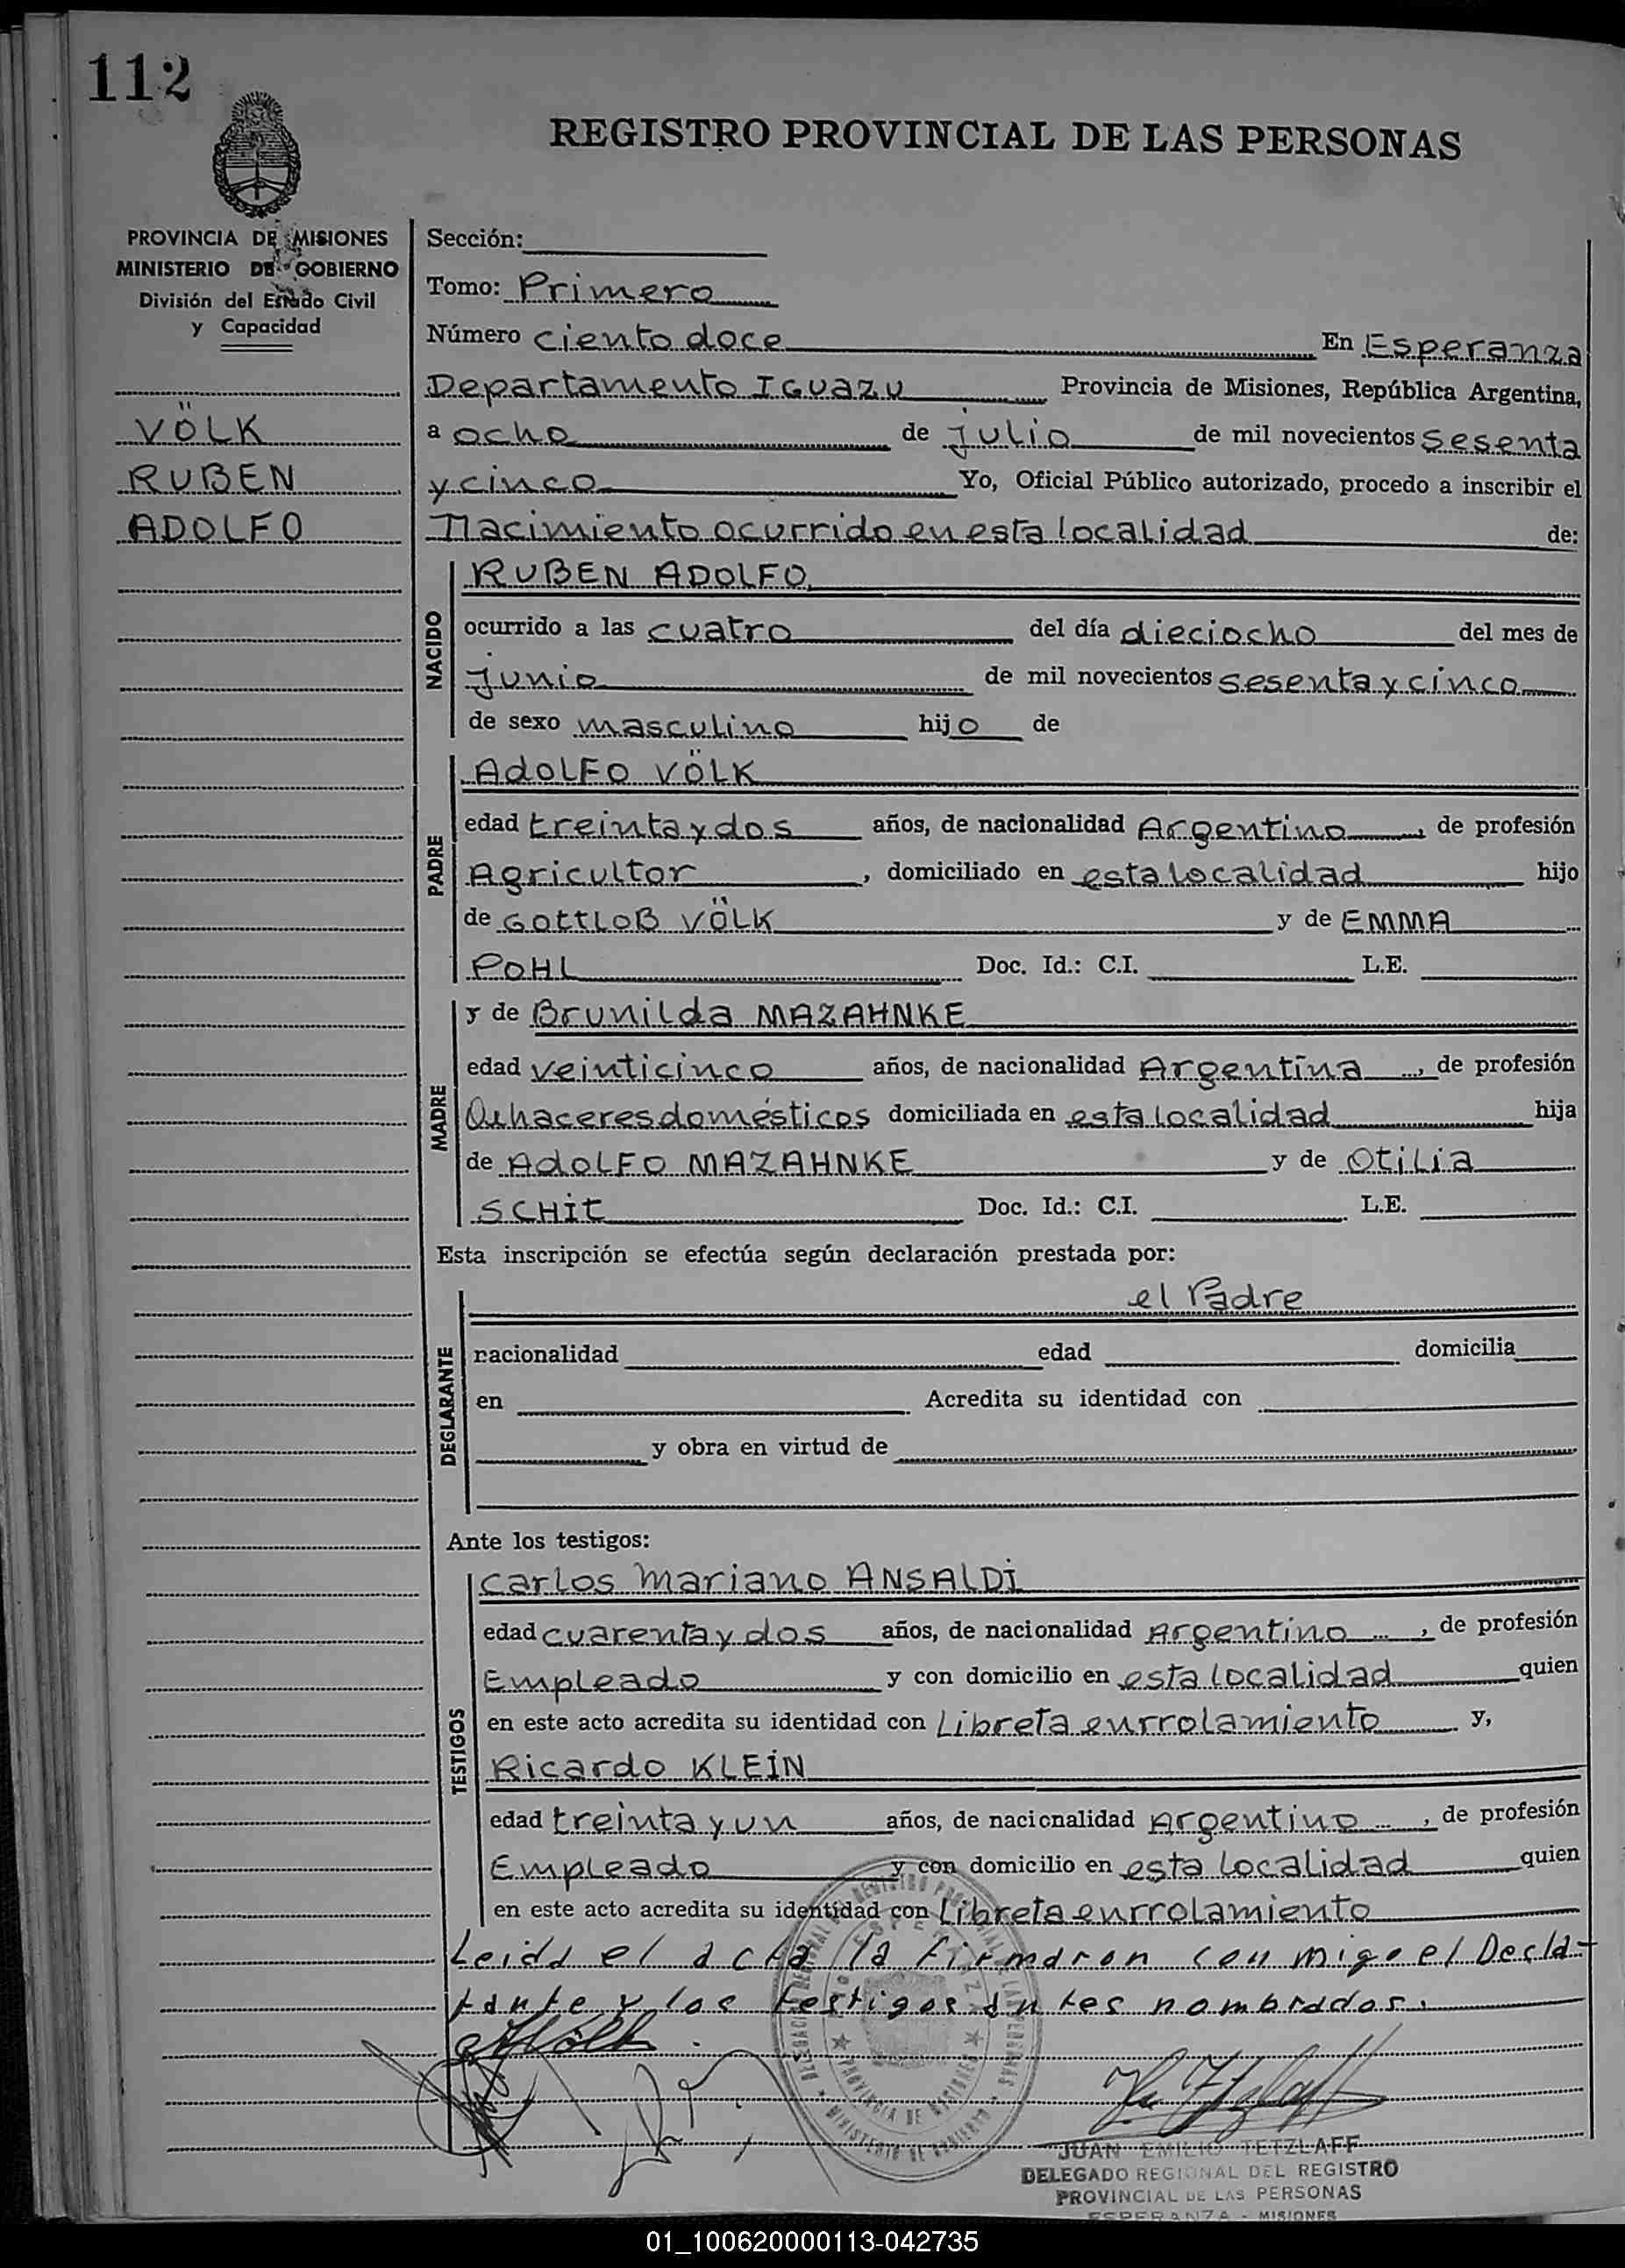 112
REGISTRO PROVINCIAL DE LAS PERSONAS
PROVINCIA DE MISIONES
MINISTERIO DE GOBIERNO
División del Estado Civil
y Capacidad
VÖLK
RUBEN
ADOLFO
Sección:
Tomo: Primero
Número ciento doce En Esperanza
Departamento IGUAZU Provincia de Misiones, República Argentina,
a ocho de julio de mil novecientos sesenta
y cinco Yo, Oficial Público autorizado, procedo a inscribir el
Nacimiento ocurrido en esta localidad de:
NACIDO
RUBEN ADOLFO
ocurrido a las cuatro del día dieciocho del mes de
junio de mil novecientos sesenta y cinco
de sexo masculino hijo de
PADRE
AdOLFO VÖLK
edad treinta y dos años, de nacionalidad Argentino, de profesión
Agricultor, domiciliado en esta localidad hijo
de GOttLOB VÖLK y de EMMA
POHL Doc. Id.: C.I. L.E.
MADRE
y de Brunilda MAZAHNKE
edad veinticinco años, de nacionalidad Argentina, de profesión
Quhaceres domésticos domiciliada en esta localidad hija
de AdOLFO MAZAHNKE y de OtiLia
SCHit Doc. Id.: C.I. L.E.
Esta inscripción se efectúa según declaración prestada por:
DECLARANTE
el Padre
nacionalidad edad domicilia
en Acredita su identidad con
y obra en virtud de
Ante los testigos:
TESTIGOS
Carlos Mariano ANSALDi
edad cuarenta y dos años, de nacionalidad Argentino, de profesión
Empleado y con domicilio en esta localidad quien
en este acto acredita su identidad con Libreta enrrolamiento y,
Ricardo KLEiN
edad treinta y un años, de nacionalidad Argentino, de profesión
Empleado y con domicilio en esta localidad quien
en este acto acredita su identidad con Libreta enrrolamiento
Leida el acta la firmaron con migo el Decla-
rante y los testigos antes nombrados.
AVölk
JUAN EMILIO TETZLAFF
DELEGADO REGIONAL DEL REGISTRO
PROVINCIAL DE LAS PERSONAS
ESPERANZA - MISIONES
01_100620000113-042735